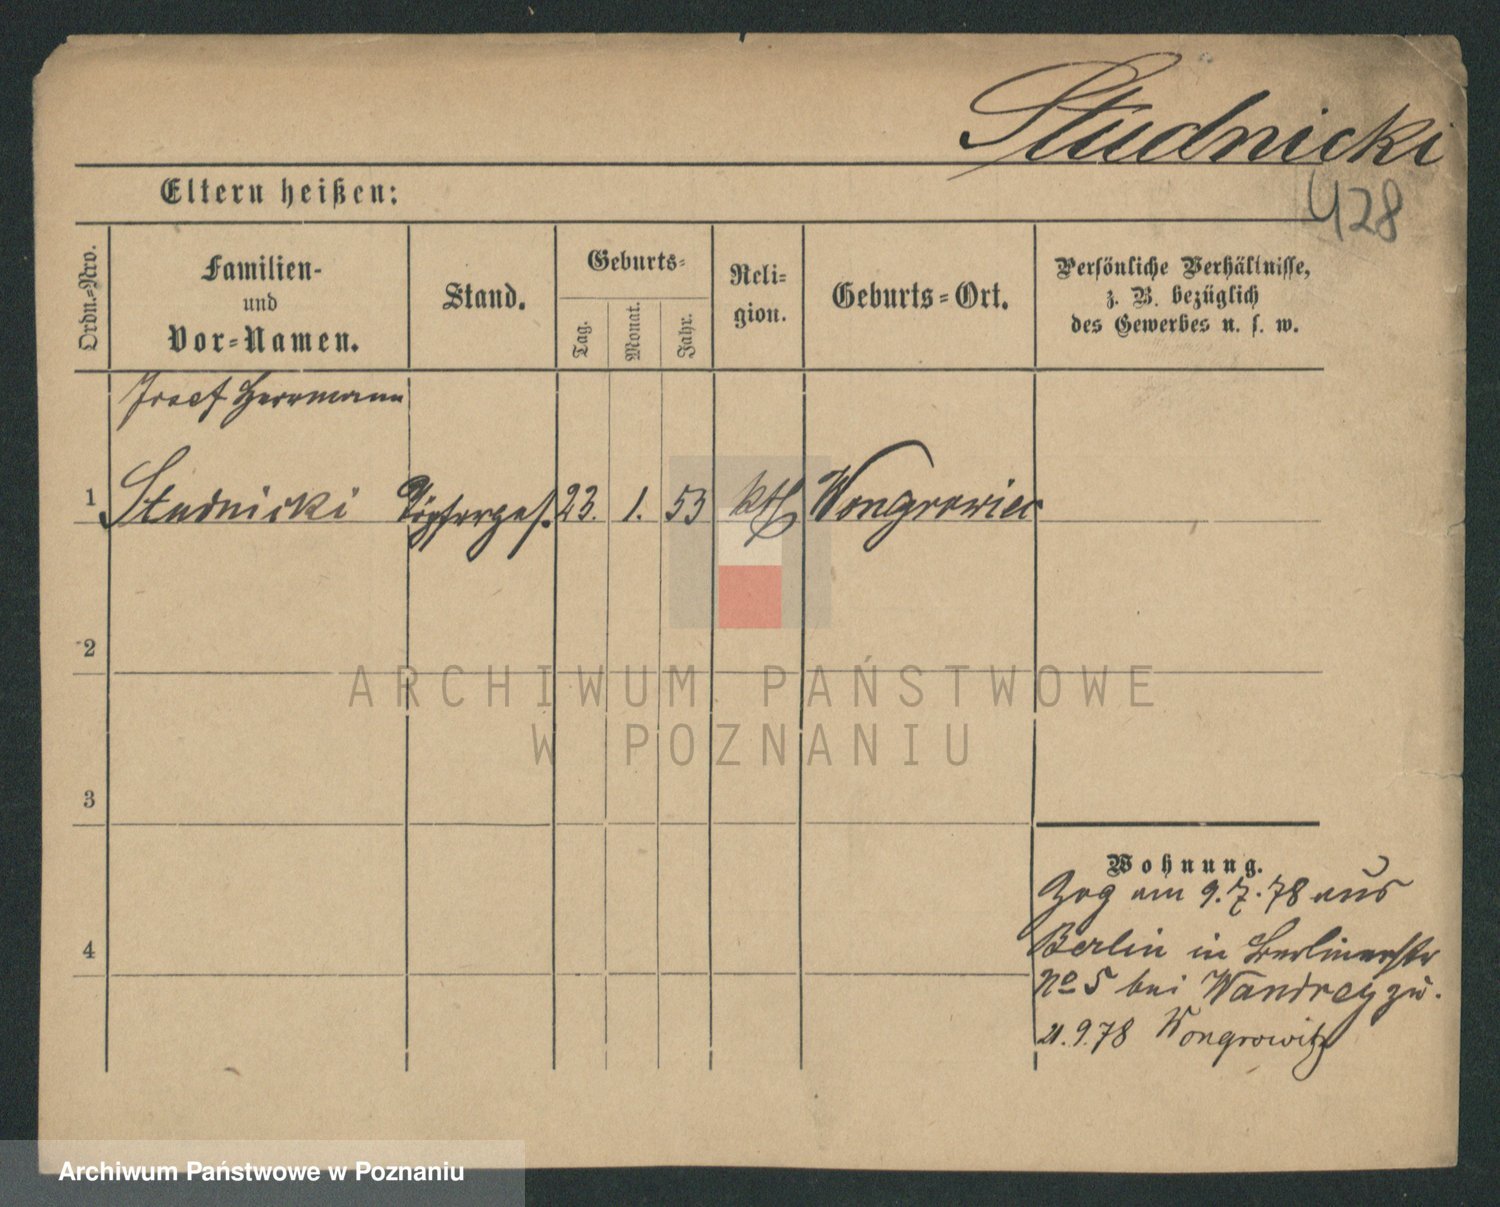 Studnicki
428
Eltern heißen:
Ordn.-Nro.
Familien-
und
Vor-Namen.
Stand.
Geburts-
Tag.
Monat.
Jahr.
Reli-
gion.
Geburts-Ort.
Persönliche Verhältnisse,
z. B. bezüglich
des Gewerbes u. s. w.
Josef Herrmann
1 Studnicki Töpferges. 23. 1. 53 kth Wongrowiec
2
3
4
Wohnung.
Zog am 9.7.78 aus
Berlin in Berlinerstr
No 5 bei Wandrey zu.
21.9.78 Wongrowitz
ARCHIWUM PAŃSTWOWE
W POZNANIU
Archiwum Państwowe w Poznaniu